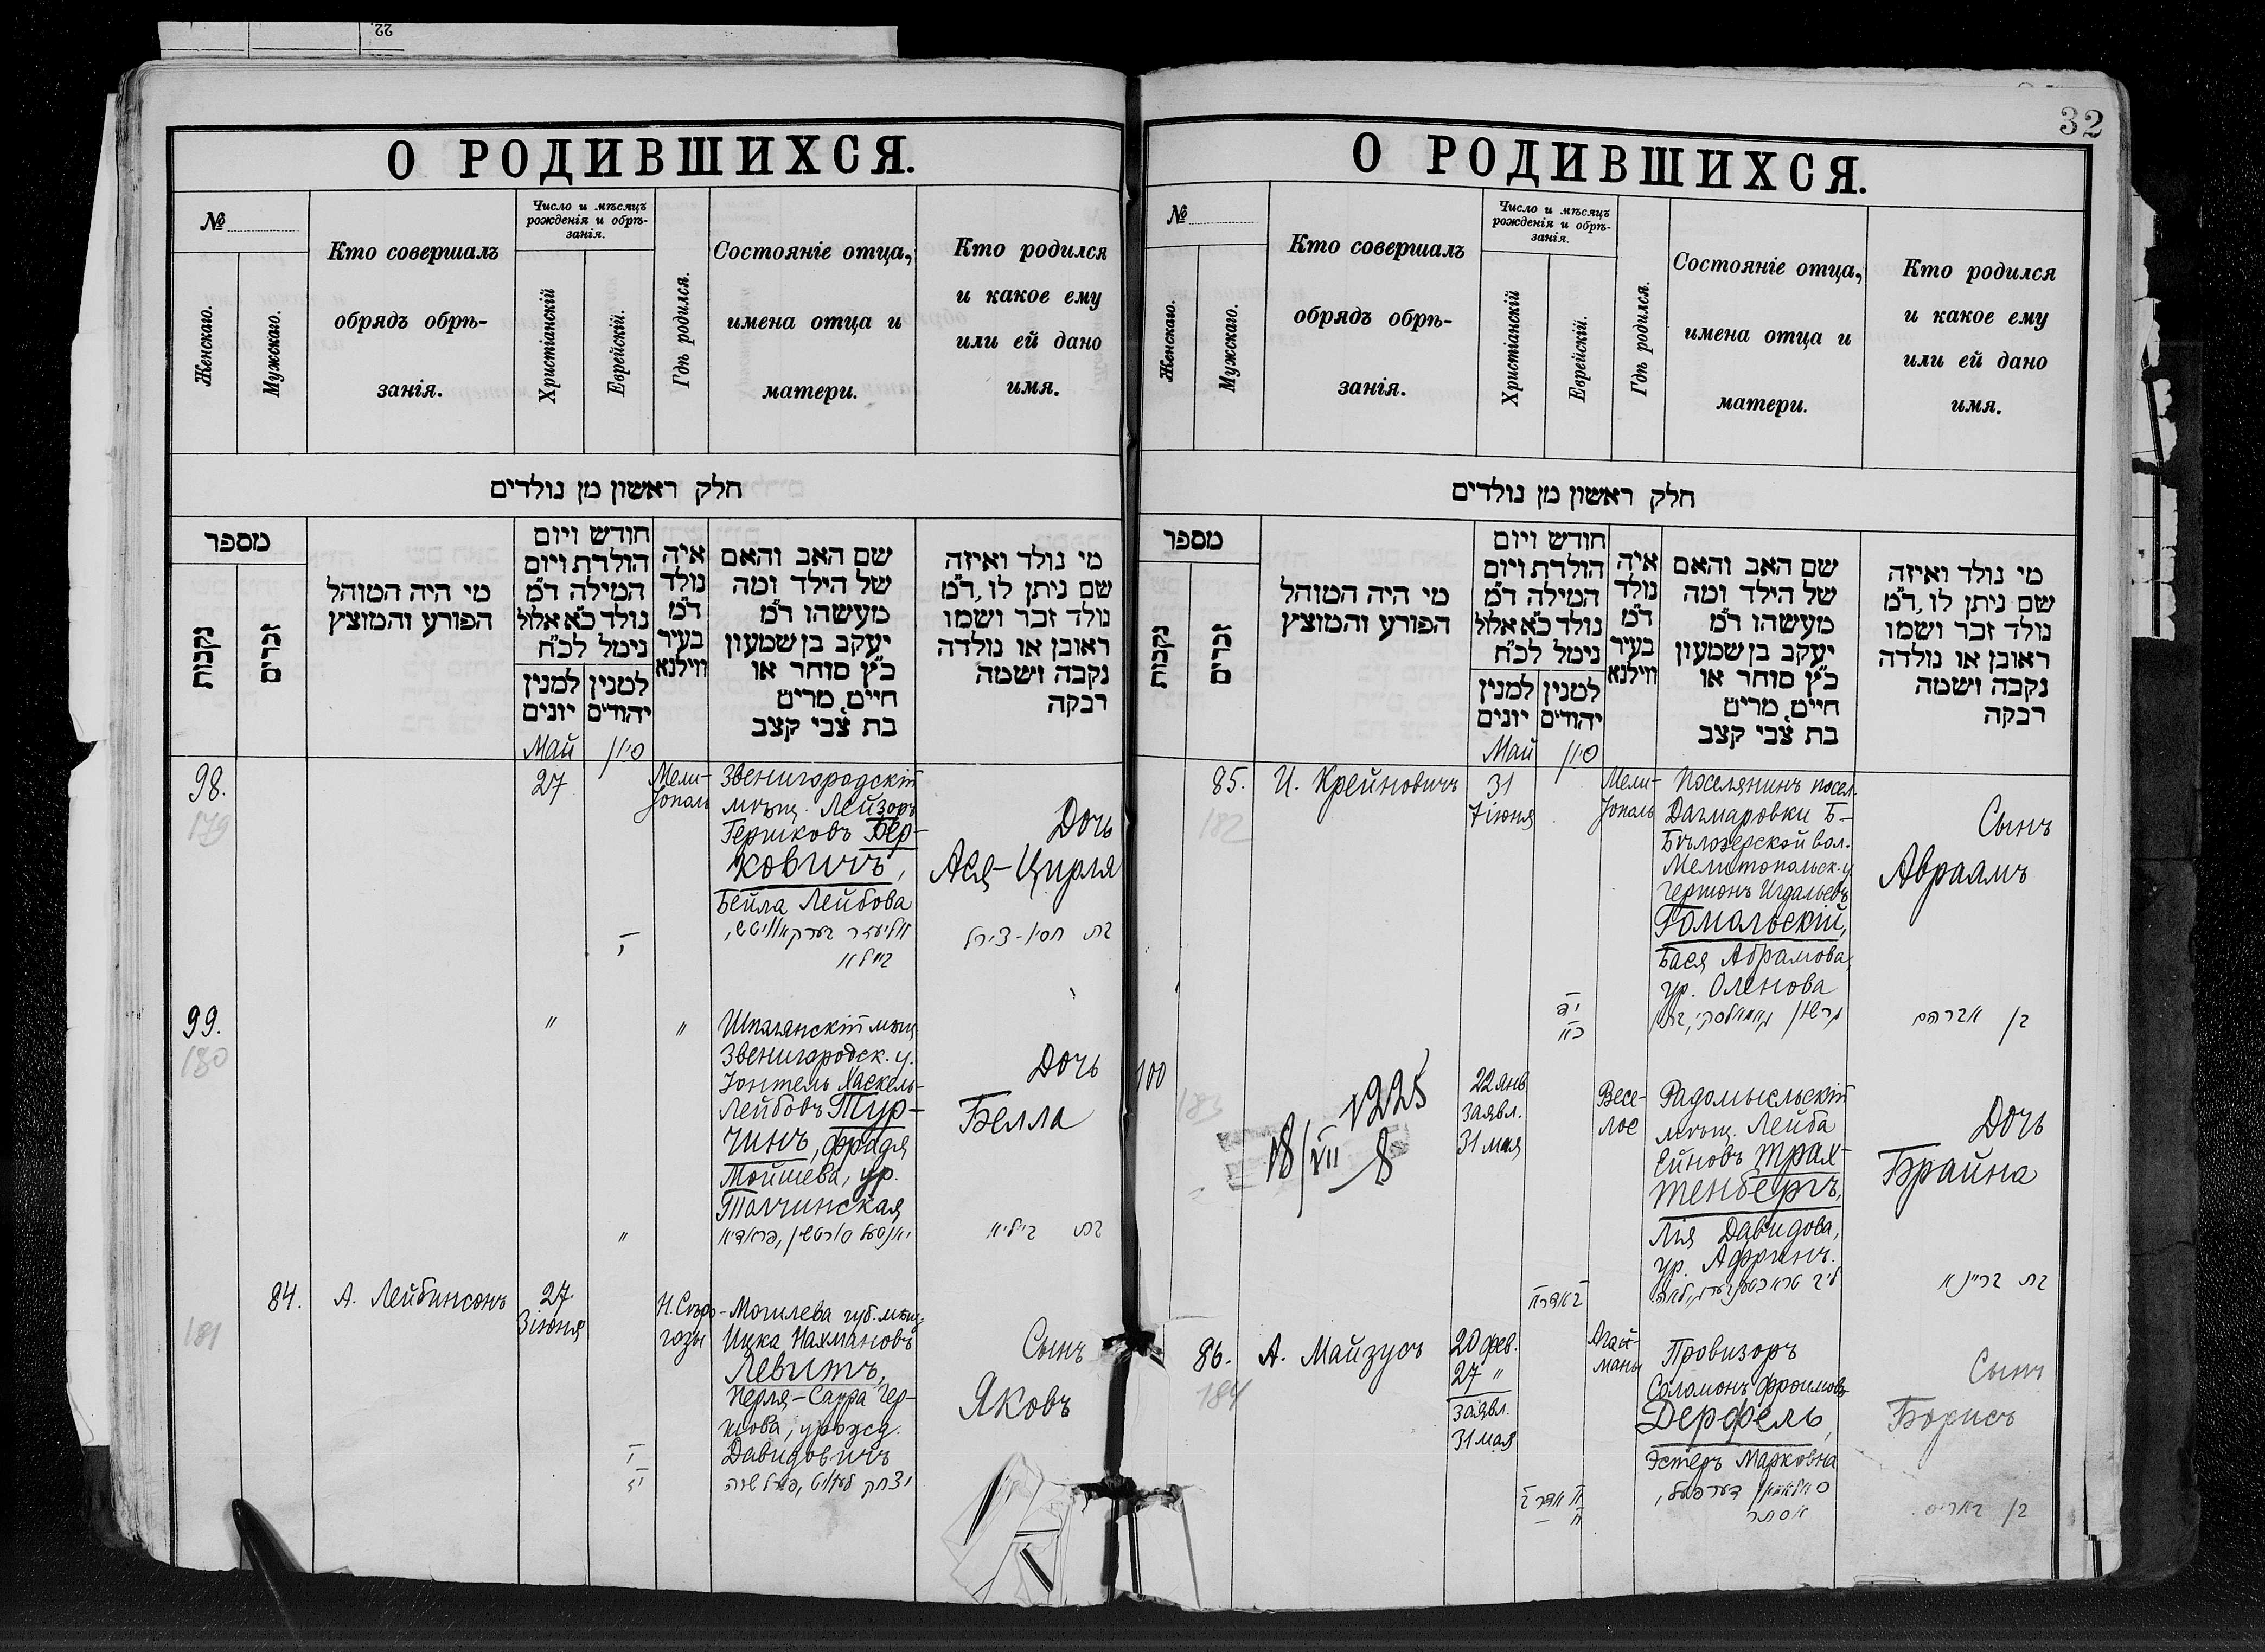 22.
32
О РОДИВШИХСЯ.
№
Женскаго.
Мужскаго.
Кто совершалъ
обрядъ обрѣ-
занія.
Число и мѣсяцъ
рожденія и обрѣ-
занія.
Христіанскій
Еврейскій.
Гдѣ родился.
Состояніе отца,
имена отца и
матери.
Кто родился
и какое ему
или ей дано
имя.
חלק ראשון מן נולדים
מספר
נקבות
זכרים
מי היה המוהל
הפורע והמוצץ
חודש ויום
הולדת ויום
המילה ד״מ
נולד כ״א אלול
נימל לכ״ח
למנין
יונים
למנין
יהודים
איה
נולד
ד״מ
בעיר
ווילנא
שם האב והאם
של הילד ומה
מעשהו ד״מ
יעקב בן שמעון
כ״ץ סוחר או
חייט, מרים
בת צבי קצב
מי נולד ואיזה
שם ניתן לו, ד״מ
נולד זכר ושמו
ראובן או נולדה
נקבה ושמה
רבקה
Май
סיון
98.
179
27
Мели-
тополь
Звенигородскій
мѣщ. Лейзоръ
Гершковъ Бер-
ковичъ,
Бейла Лейбова
Дочь
Ася-Цирля
אליעזר בערקאוויטש,
ביילא
בת חסיא-צירל
99.
180
"
"
Шполянскій мѣщ.
Звенигородск. у.
Іонтель Хаскель-
Лейбовъ Тур-
чинъ, Фрадя
Мойшева, ур.
Толчинская
Дочь
Белла
"
בת ביילא
84.
181
А. Лейбинсонъ
27
3 іюня
Н. Сѣро-
гозы
Могилева губ. мѣщ.
Ицка Нахмановъ
Левитъ,
Перля-Сарра Гер-
шова, урожд.
Давидовичъ
Сынъ
Яковъ
יצחק לעוויט, פערל שרה
О РОДИВШИХСЯ.
№
Женскаго.
Мужскаго.
Кто совершалъ
обрядъ обрѣ-
занія.
Число и мѣсяцъ
рожденія и обрѣ-
занія.
Христіанскій
Еврейскій.
Гдѣ родился.
Состояніе отца,
имена отца и
матери.
Кто родился
и какое ему
или ей дано
имя.
חלק ראשון מן נולדים
מספר
נקבות
זכרים
מי היה המוהל
הפורע והמוצץ
חודש ויום
הולדת ויום
המילה ד״מ
נולד כ״א אלול
נימל לכ״ח
למנין
יונים
למנין
יהודים
איה
נולד
ד״מ
בעיר
ווילנא
שם האב והאם
של הילד ומה
מעשהו ד״מ
יעקב בן שמעון
כ״ץ סוחר או
חייט, מרים
בת צבי קצב
מי נולד ואיזה
שם ניתן לו, ד״מ
נולד זכר ושמו
ראובן או נולדה
נקבה ושמה
רבקה
Май
סיון
85.
182
И. Крейновичъ
31
7 іюня
Мели-
тополь
Поселянинъ посел.
Дагмаровки Б-
Бѣлозерской вол.
Мелитопольск. у.
Гершонъ Игдальевъ
Гомольскій,
Бася Абрамова,
ур. Оленова
Сынъ
Авраамъ
בן אברהם
100
183
1225
18/VII 8
22 янв
заявл.
31 мая
Весе-
лое
Радомысльскій
мѣщ. Лейба
Ейновъ Трах-
тенбергъ,
Лія Давидова,
ур. Адринъ.
Дочь
Брайна
בת בריינא
86.
184
А. Майзусъ
20 фев.
27 "
заявл.
31 мая
Агай-
маны
Провизоръ
Соломонъ Фроимовъ
Дерфель,
Эстеръ Марковна
Сынъ
Борисъ
סאלאמאן דערפעל,
אסתר
בן באריס